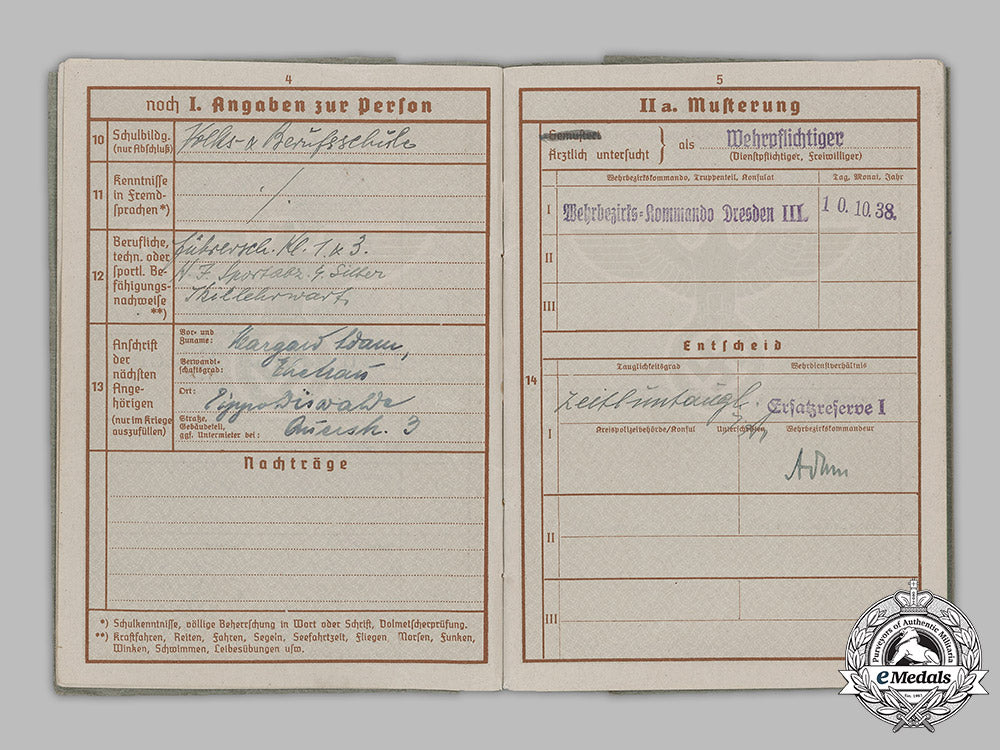 4
noch I. Angaben zur Person
10 Schulbildg. (nur Abschluß)
Volks- u Berufsschule
11 Kenntnisse in Fremdsprachen *)
/.
12 Berufliche, techn. oder sportl. Befähigungsnachweise **)
Führersch. Kl. 1 u 3.
Sportabz. Silber
Skilehrwart
13 Anschrift der nächsten Angehörigen (nur im Kriege auszufüllen)
Vor- und Zuname:
Adam,
Verwandtschaftsgrad:
Ehefrau
Ort:
Dippoldiswalde
Straße, Gebäudeteil, ggf. Untermieter bei:
3
Nachträge
*) Schulkenntnisse, völlige Beherrschung in Wort oder Schrift, Dolmetscherprüfung.
**) Kraftfahren, Reiten, Fahren, Segeln, Seefahrtzeit, Fliegen, Morsen, Funken,
Winken, Schwimmen, Leibesübungen usw.
5
II a. Musterung
Gemustert
Ärztlich untersucht } als Wehrpflichtiger
(Dienstpflichtiger, Freiwilliger)
Wehrbezirkskommando, Truppenteil, Konsulat
Tag, Monat, Jahr
I Wehrbezirks-Kommando Dresden III. 10.10.38.
II
III
Entscheid
14
Tauglichkeitsgrad
Wehrdienstverhältnis
zeitl. untaugl.
Ersatzreserve I
I
Kreispolizeibehörde/Konsul
Unterschriften
Wehrbezirkskommandeur
Adam
II
III
Purveyors of Authentic Militaria
eMedals